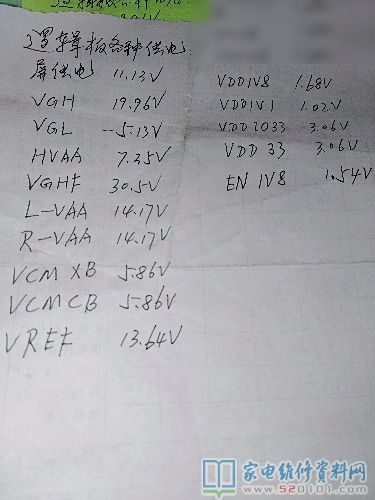 逻辑板各种供电:
屏供电 11.13V
VGH 19.96V
VGL -5.13V
HVAA 7.25V
VGHF 30.5V
L-VAA 14.17V
R-VAA 14.17V
VCM XB 5.86V
VCMCB 5.86V
VREF 13.64V
VDD1V8 1.68V
VDD1V1 1.02V
VDD2033 3.06V
VDD33 3.06V
EN 1V8 1.54V
家电维修资料网
www.520101.com